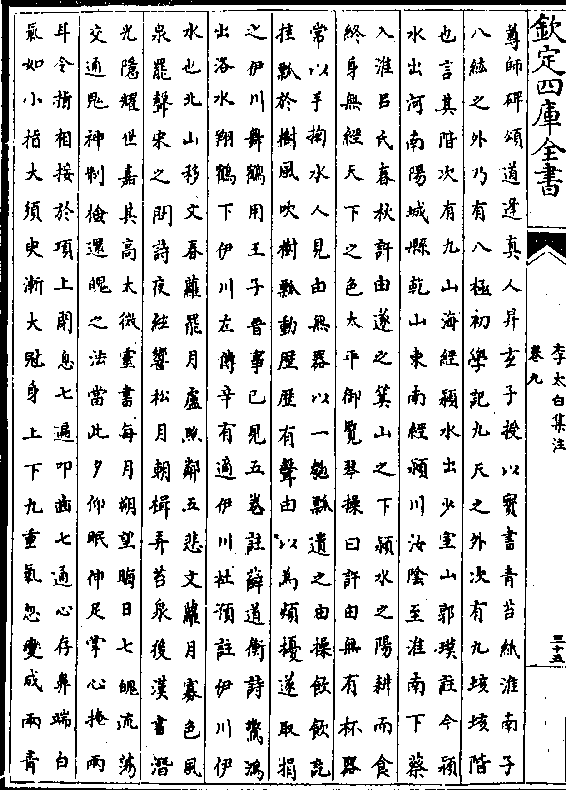 欽定四庫全書
李太白集注
卷九
三十五
尊師碑頌道逢真人昇玄子授以寳書青苔紙淮南子
八紘之外乃有八極初學記九天之外次有九垓垓階
也言其階次有九山海經潁水出少室山郭璞註今潁
水出河南陽城縣乾山東南經潁川汝陰至淮南下蔡
入淮吕氏春秋許由遂之箕山之下潁水之陽耕而食
終身無經天下之色太平御覽琴操曰許由無有杯器
常以手掬水人見由無器以一匏瓢遺之由操飲飲訖
挂瓢於樹風吹樹瓢動歴歴有聲由以為煩擾遂取捐
之伊川舞鶴用王子晉事已見五卷註薛道衡詩驚鴻
出洛水翔鶴下伊川左傳辛有適伊川杜預註伊川伊
水也北山移文春蘿罷月盧照鄰五悲文蘿月寡色風
泉罷聲宋之問詩夜絃響松月朝楫弄苔泉後漢書潛
光隱耀世嘉其高太微靈書每月朔望晦日七魄流蕩
交通鬼神制檢還魄之法當此夕仰眠伸足掌心掩兩
耳令指相接於項上閉息七遍叩齒七通心存鼻端白
氣如小指大須臾漸大冠身上下九重氣忽變成兩青